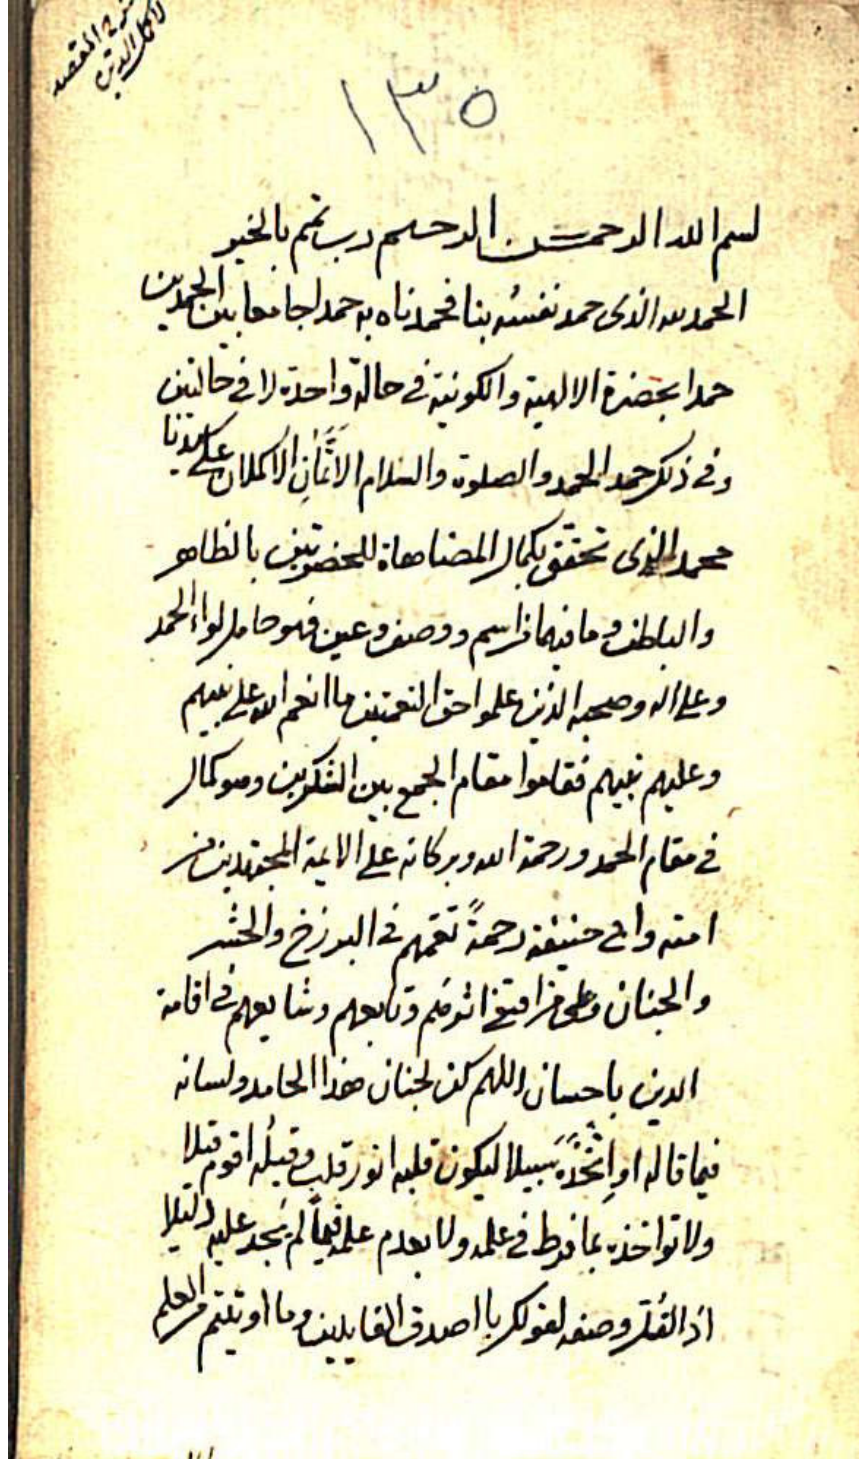 شرح المقصد
لاكمل الدين
١٣٥
بسم الله الرحمن الرحيم رب تمم بالخير
الحمد لله الذى حمد نفسه بنا فحمدناه به حمدا جامعا بين الحمدين
حمدا بحضرة الالهية والكونية فى حالة واحدة لا فى حالتين
وفى ذلك حمد الحمد والصلوة والسلام الاتمّان الاكملان على سيدنا
محمد الذى تحقق بكمال المضاهاة للحضرتين بالظاهر
والباطن وما فيهما من اسم ووصف وعين فهو حامل لواء الحمد
وعلى اله وصحبه الذين علموا حق النعمتين ما انعم الله على نبيهم
وعليهم نبيهم فقاموا مقام الجمع بين الشكرين وهو كمال
فى مقام الحمد ورحمة الله وبركاته على الايمة المجتهدين من
امته وابى حنيفة رحمةً تعمهم فى البرزخ والحشر
والجنان وعلى من اقتفى اثرهم وتابعهم وشايعهم فى اقامة
الدين باحسان اللهم كن لجنان هذا الحامد ولسانه
فيما قاله او اتخذه سبيلا ليكون قلبه انور قلب وقيله اقوم قيلا
ولا تواخذه بما فرط فى علمه ولا بعدم علمه فيما لم يجد عليه دليلا
اذ القل وصفه لقولك يا اصدق القايلين وما اوتيتم من العلم